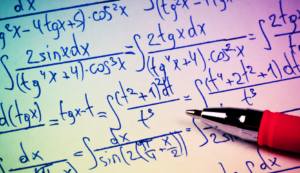 dx
g²x-4tgx+5)·cos²x
∫ 2sinxdx / (tg⁴x+4)·cos³x = ∫ 2tgxdx / (tg⁴x+4)·cos²x = ∫ 2tg
d(tgx) = tgx-t = ∫ (t²+1)²dt / t³ = ∫ (t⁴+2t²+1) / t³
dx = ∫ dx / sin(2(π/4+x/2)) = ∫ 2sin